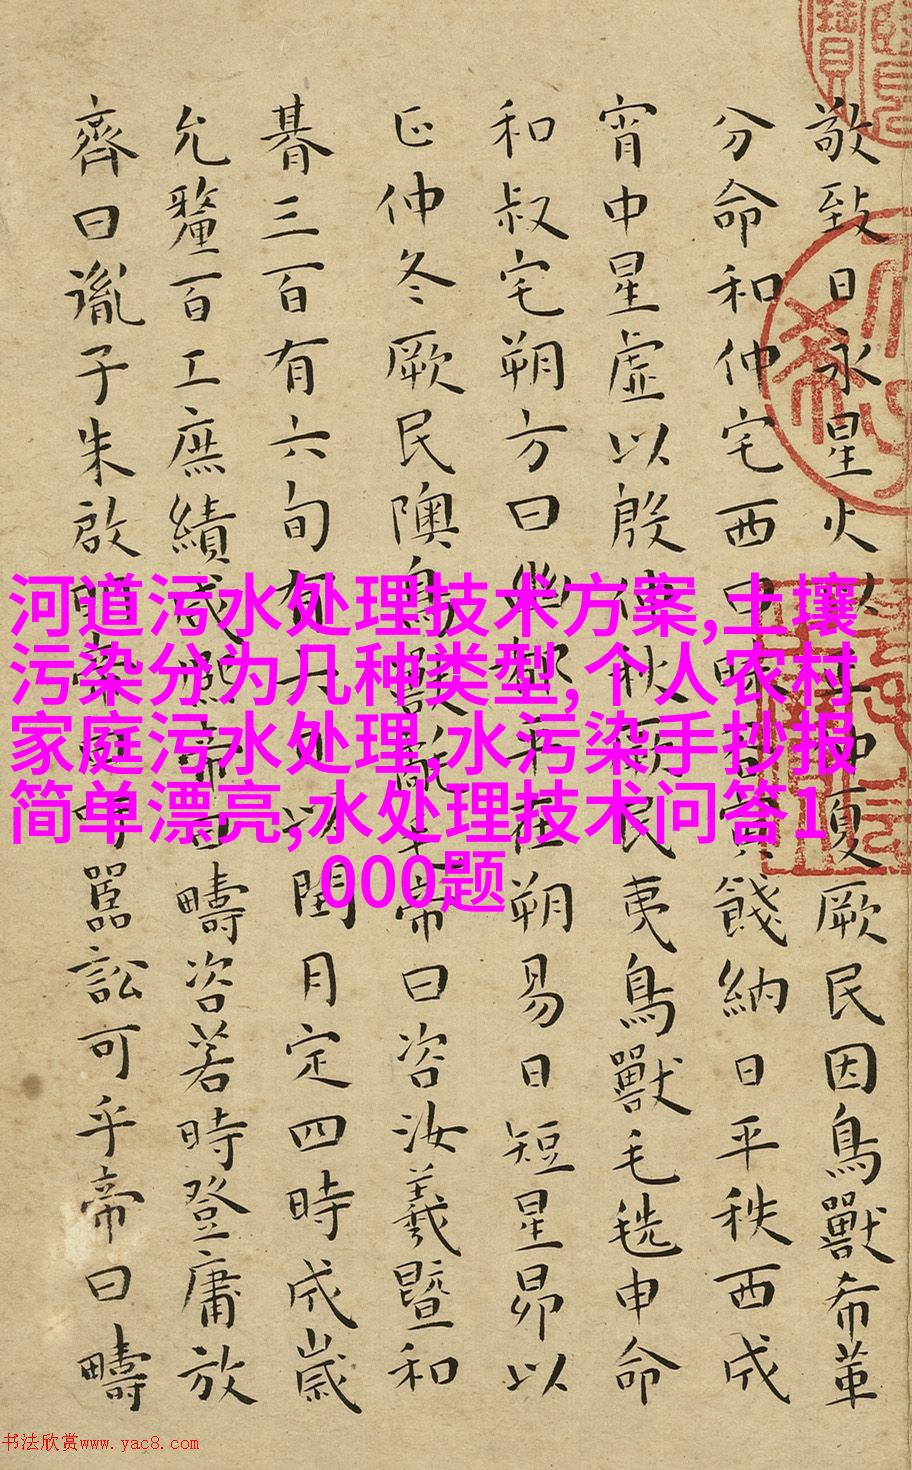 敬致日永星火以正仲夏厥民因鳥獸希革
分命和仲宅西曰昧谷寅餞納日平秩西成
宵中星虛以殷仲秋厥民夷鳥獸毛毨申命
和叔宅朔方曰幽都平在朔易日短星昴以
正仲冬厥民隩鳥獸氄毛帝曰咨汝羲暨和
朞三百有六旬有六日以閏月定四時成歲
允釐百工庶績咸熙帝曰疇咨若時登庸放
齊曰胤子朱啟明帝曰吁嚚訟可乎帝曰疇
河道污水处理技术方案,土壤
污染分为几种类型,个人农村
家庭污水处理,水污染手抄报
简单漂亮,水处理技术问答1
000题
书法欣赏www.yac8.com